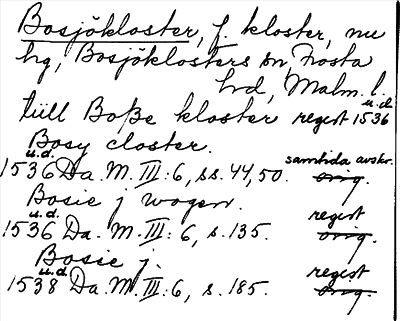 Bosjökloster, f. kloster, nu
hg, Bosjöklosters sn, Frosta
hd, Malm. l.
u.d.
till Boße kloster regest 1536
Bosy closter.
u.d. samtida avskr.
1536 Da. M. III: 6, ss. 44, 50. orig.
Bosie j wogen. regest
u.d.
1536 Da. M. III: 6, s. 135. orig.
Bosie j. regest
u.d.
1538 Da. M. III: 6, s. 185. orig.